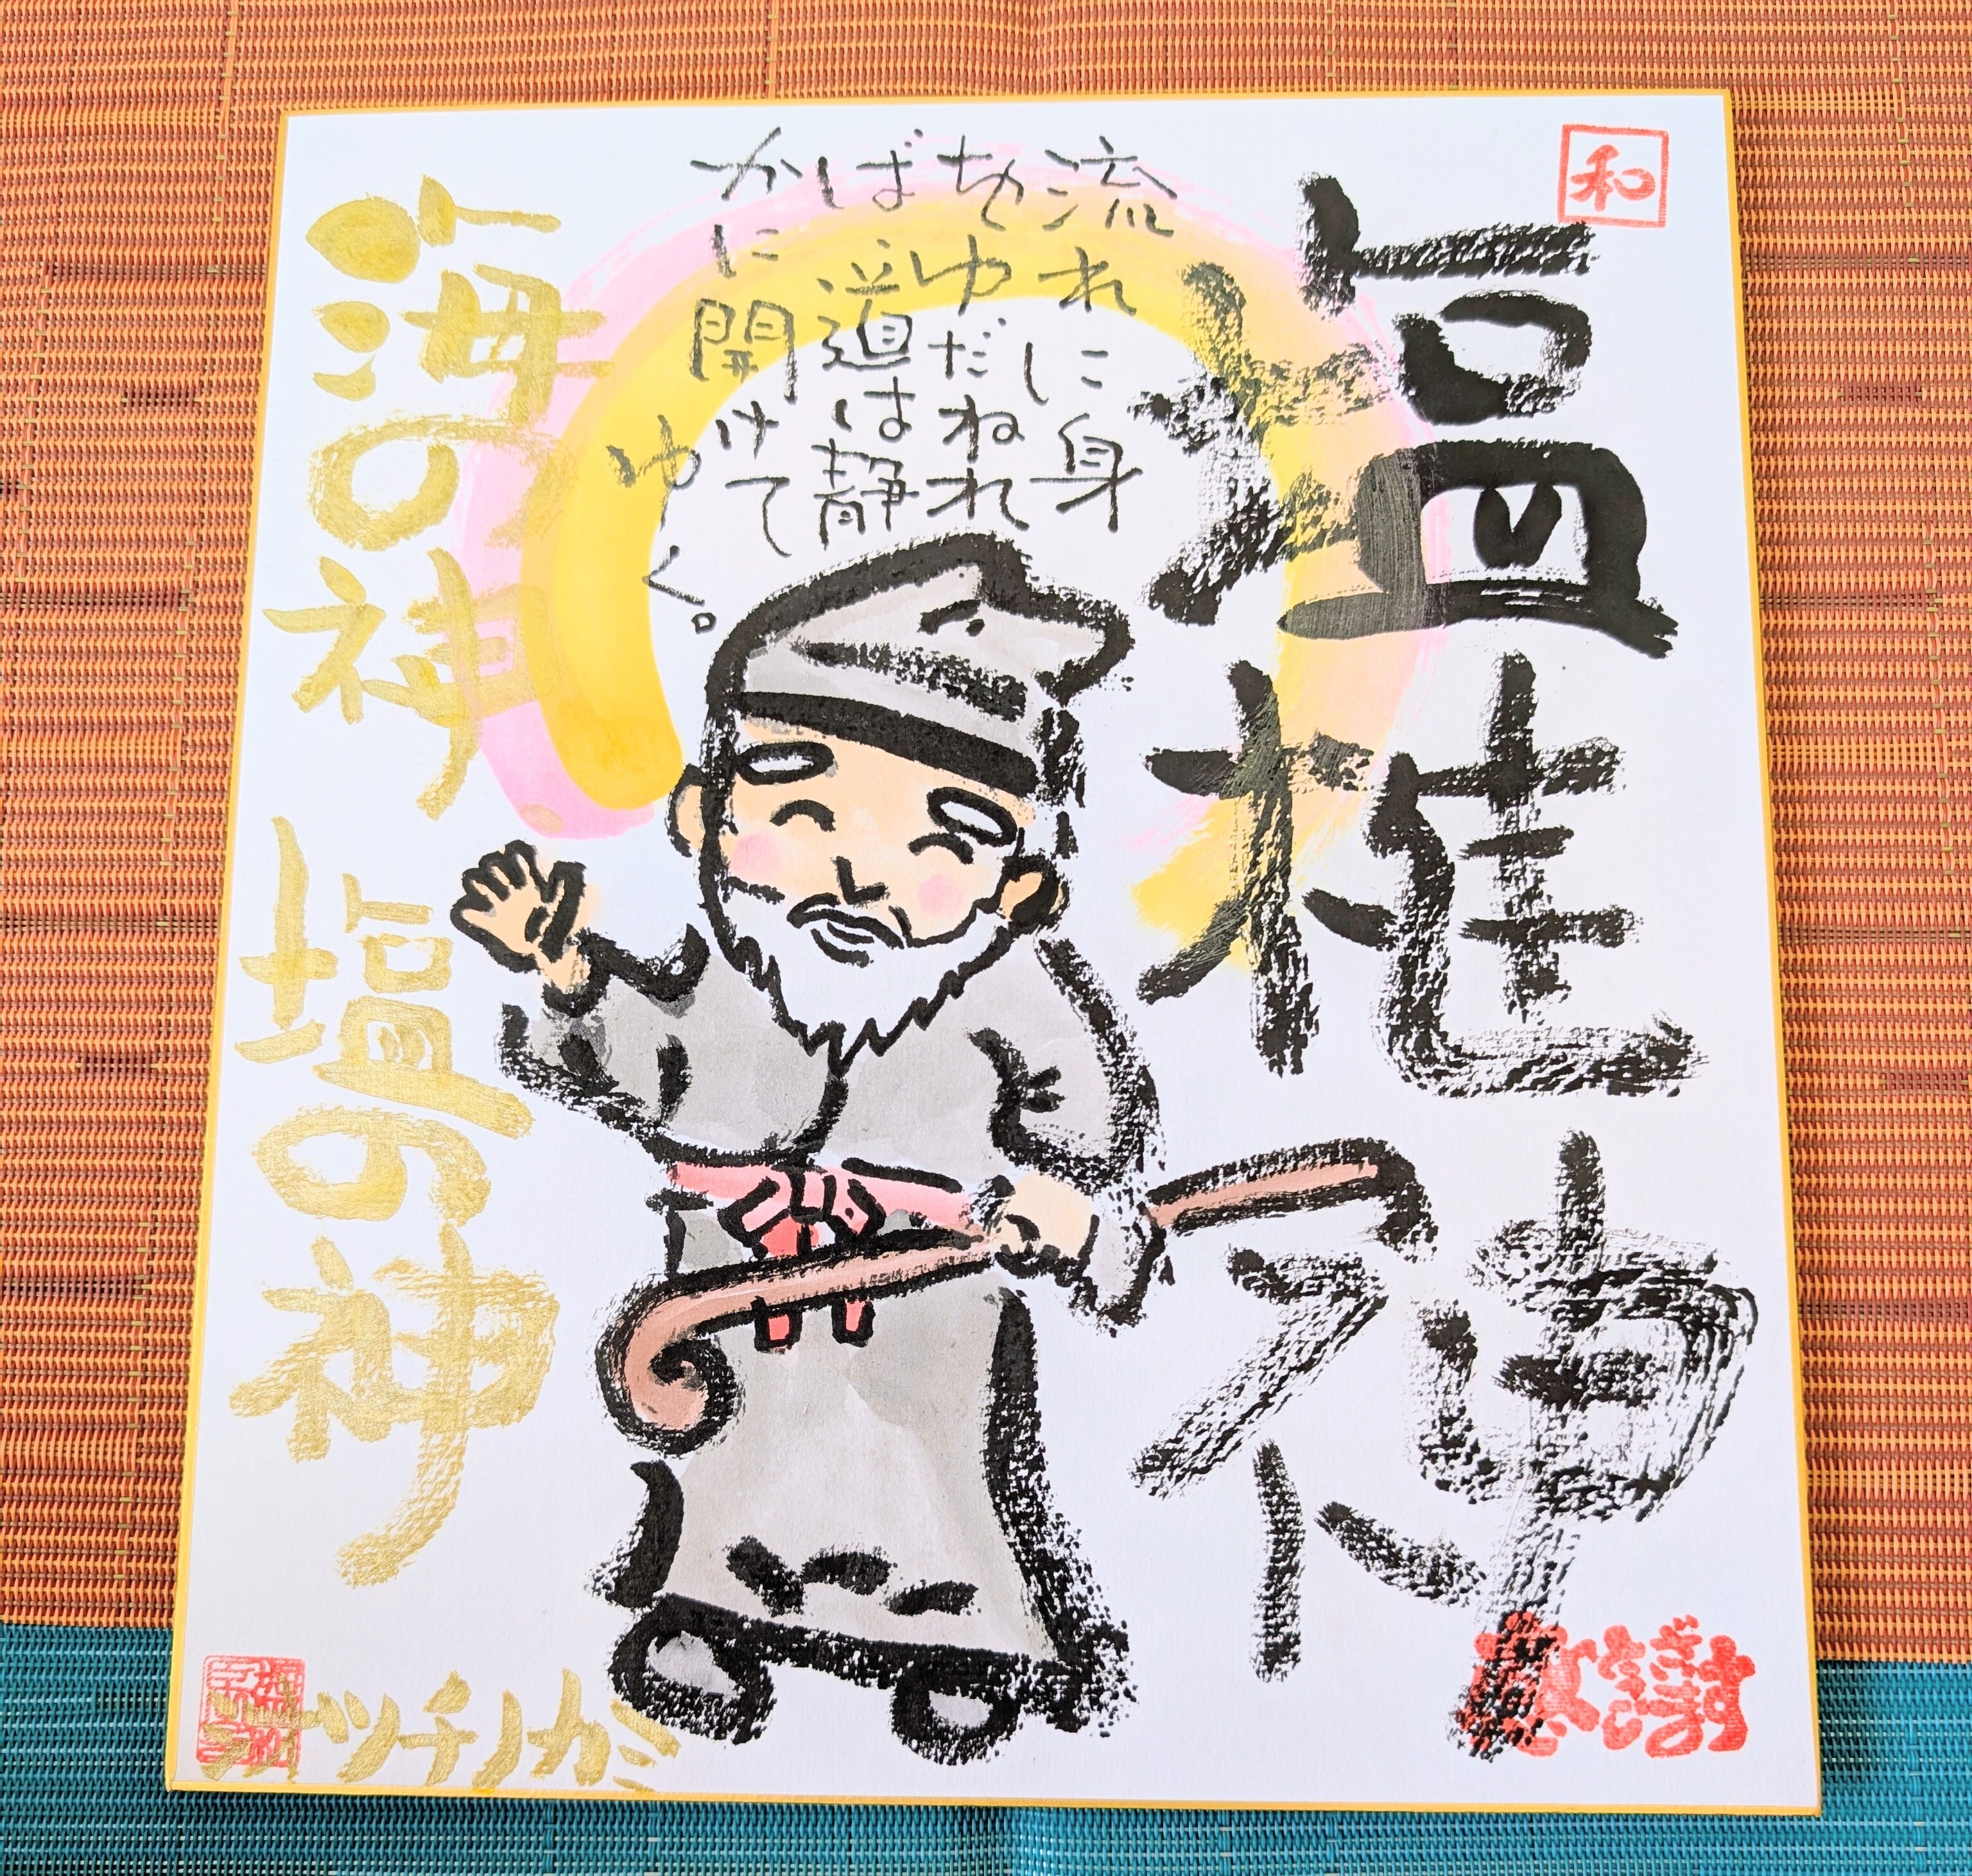 和
塩椎神
流れに身
をゆだねれ
ば道は静
かに開けて
ゆく。
海の神 塩の神
シオツチノカミ